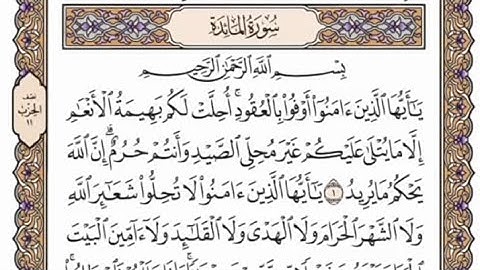 سُورَةُ المَائِدَةِ
نصف
الحزب
١١
بِسْمِ ٱللَّهِ ٱلرَّحْمَٰنِ ٱلرَّحِيمِ
يَٰٓأَيُّهَا ٱلَّذِينَ ءَامَنُوٓا۟ أَوْفُوا۟ بِٱلْعُقُودِ ۚ أُحِلَّتْ لَكُم بَهِيمَةُ ٱلْأَنْعَٰمِ
إِلَّا مَا يُتْلَىٰ عَلَيْكُمْ غَيْرَ مُحِلِّى ٱلصَّيْدِ وَأَنتُمْ حُرُمٌ ۗ إِنَّ ٱللَّهَ
يَحْكُمُ مَا يُرِيدُ ١ يَٰٓأَيُّهَا ٱلَّذِينَ ءَامَنُوا۟ لَا تُحِلُّوا۟ شَعَٰٓئِرَ ٱللَّهِ
وَلَا ٱلشَّهْرَ ٱلْحَرَامَ وَلَا ٱلْهَدْىَ وَلَا ٱلْقَلَٰٓئِدَ وَلَآ ءَآمِّينَ ٱلْبَيْتَ